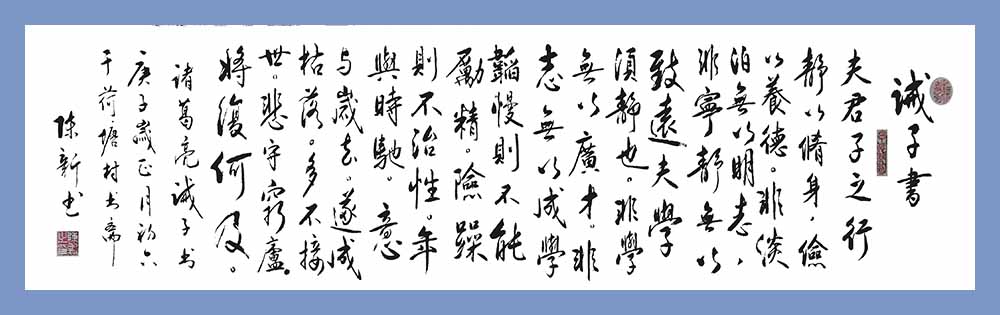 诫子書
夫君子之行
靜以脩身，儉
以養德。非淡
泊無以明志，
非寧靜無以
致遠夫學
須靜也。非學
無以廣才。非
志無以成學
韜慢則不能
勵精。險躁
則不治性。年
與時馳。意
与歲去。遂成
枯落。多不接
世。悲守窮廬。
將復何及。
诸葛亮诫子书
庚子歲正月初六
于荷塘村书斋
陈新书